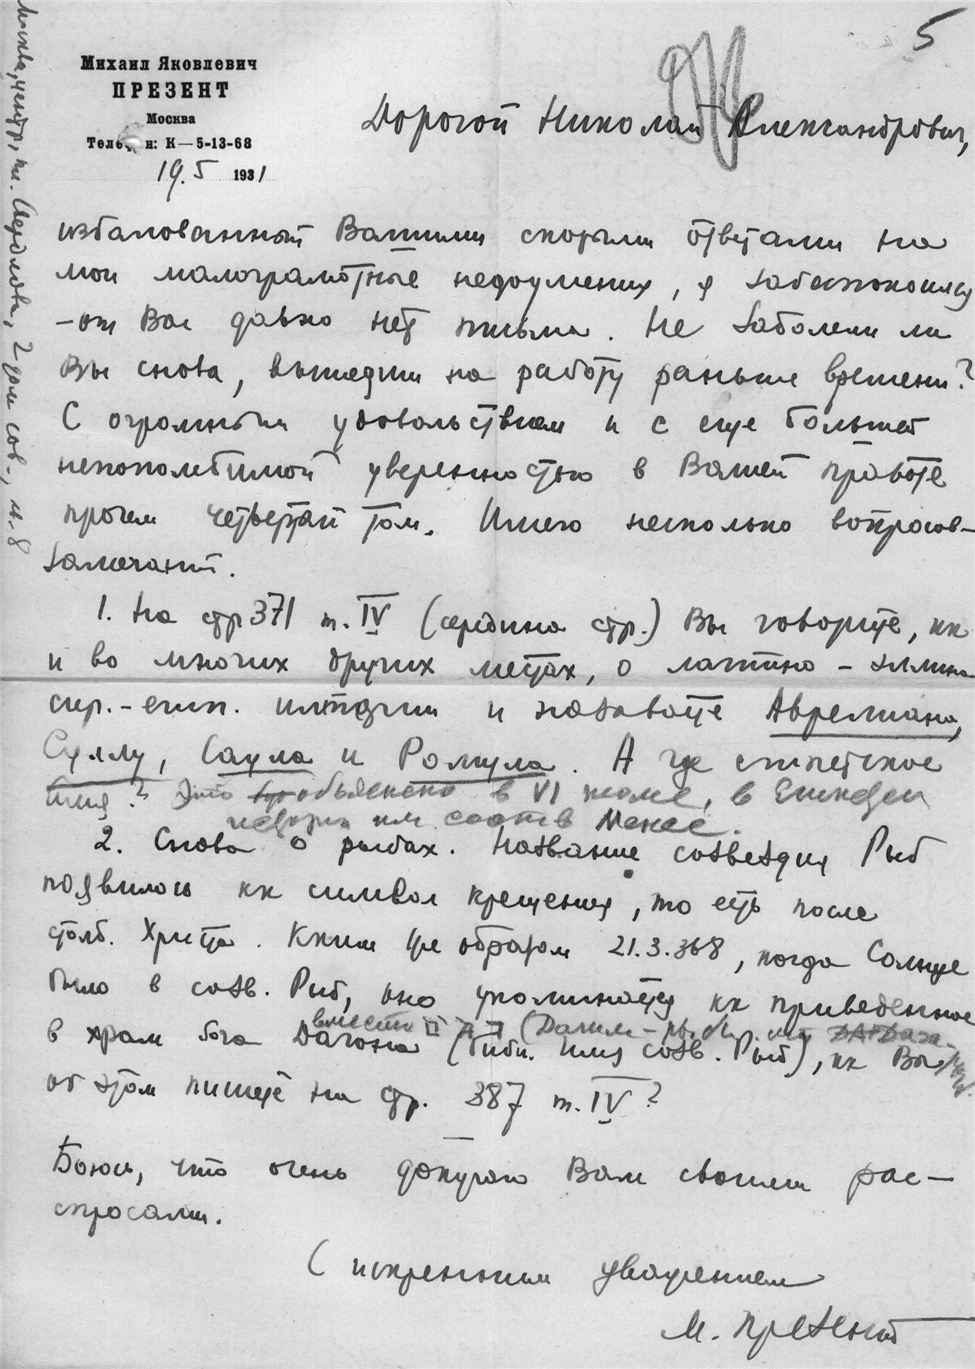 5
Михаил Яковлевич
ПРЕЗЕНТ
Москва
Телефон: К—5-13-68
19.5 1931
Дорогой Николай Александрович,
избалованный Вашими скорыми ответами на
мои малограмотные недоумения, я забеспокоился
– от Вас давно нет письма. Не заболели ли
Вы снова, вышедши на работу раньше времени?
С огромным удовольствием и с еще большей
непоколебимой уверенностью в Вашей правоте
прочел четвертый том. Имею несколько вопросов–
замечаний.
1. На стр 371 т. IV (середина стр.) Вы говорите, кк
и во многих других местах, о латино – эллино
сир.–егип. империи и называете Аврелиана,
Суллу, Саула и Ромула. А где египетское
имя? Это объяснено в VI томе, в Египетск
истории им соотв Менес.
2. Снова о рыбах. Название созвездия Рыб
появилось кк символ крещения, то есть после
столб. Христа. Каким же образом 21.3.368, когда Солнце
было в созв. Рыб, оно упоминается кк приведенное
вместо
в храм бога Дагона (библ. имя созв. Рыб), кк Вы
об этом пишете на стр. 387 т. IV?
Боюсь, что очень докучаю Вам своими рас–
спросами.
С искренним уважением
М. Презент
Москва, центр, пл. Свердлова, 2 дом сов., к. 8